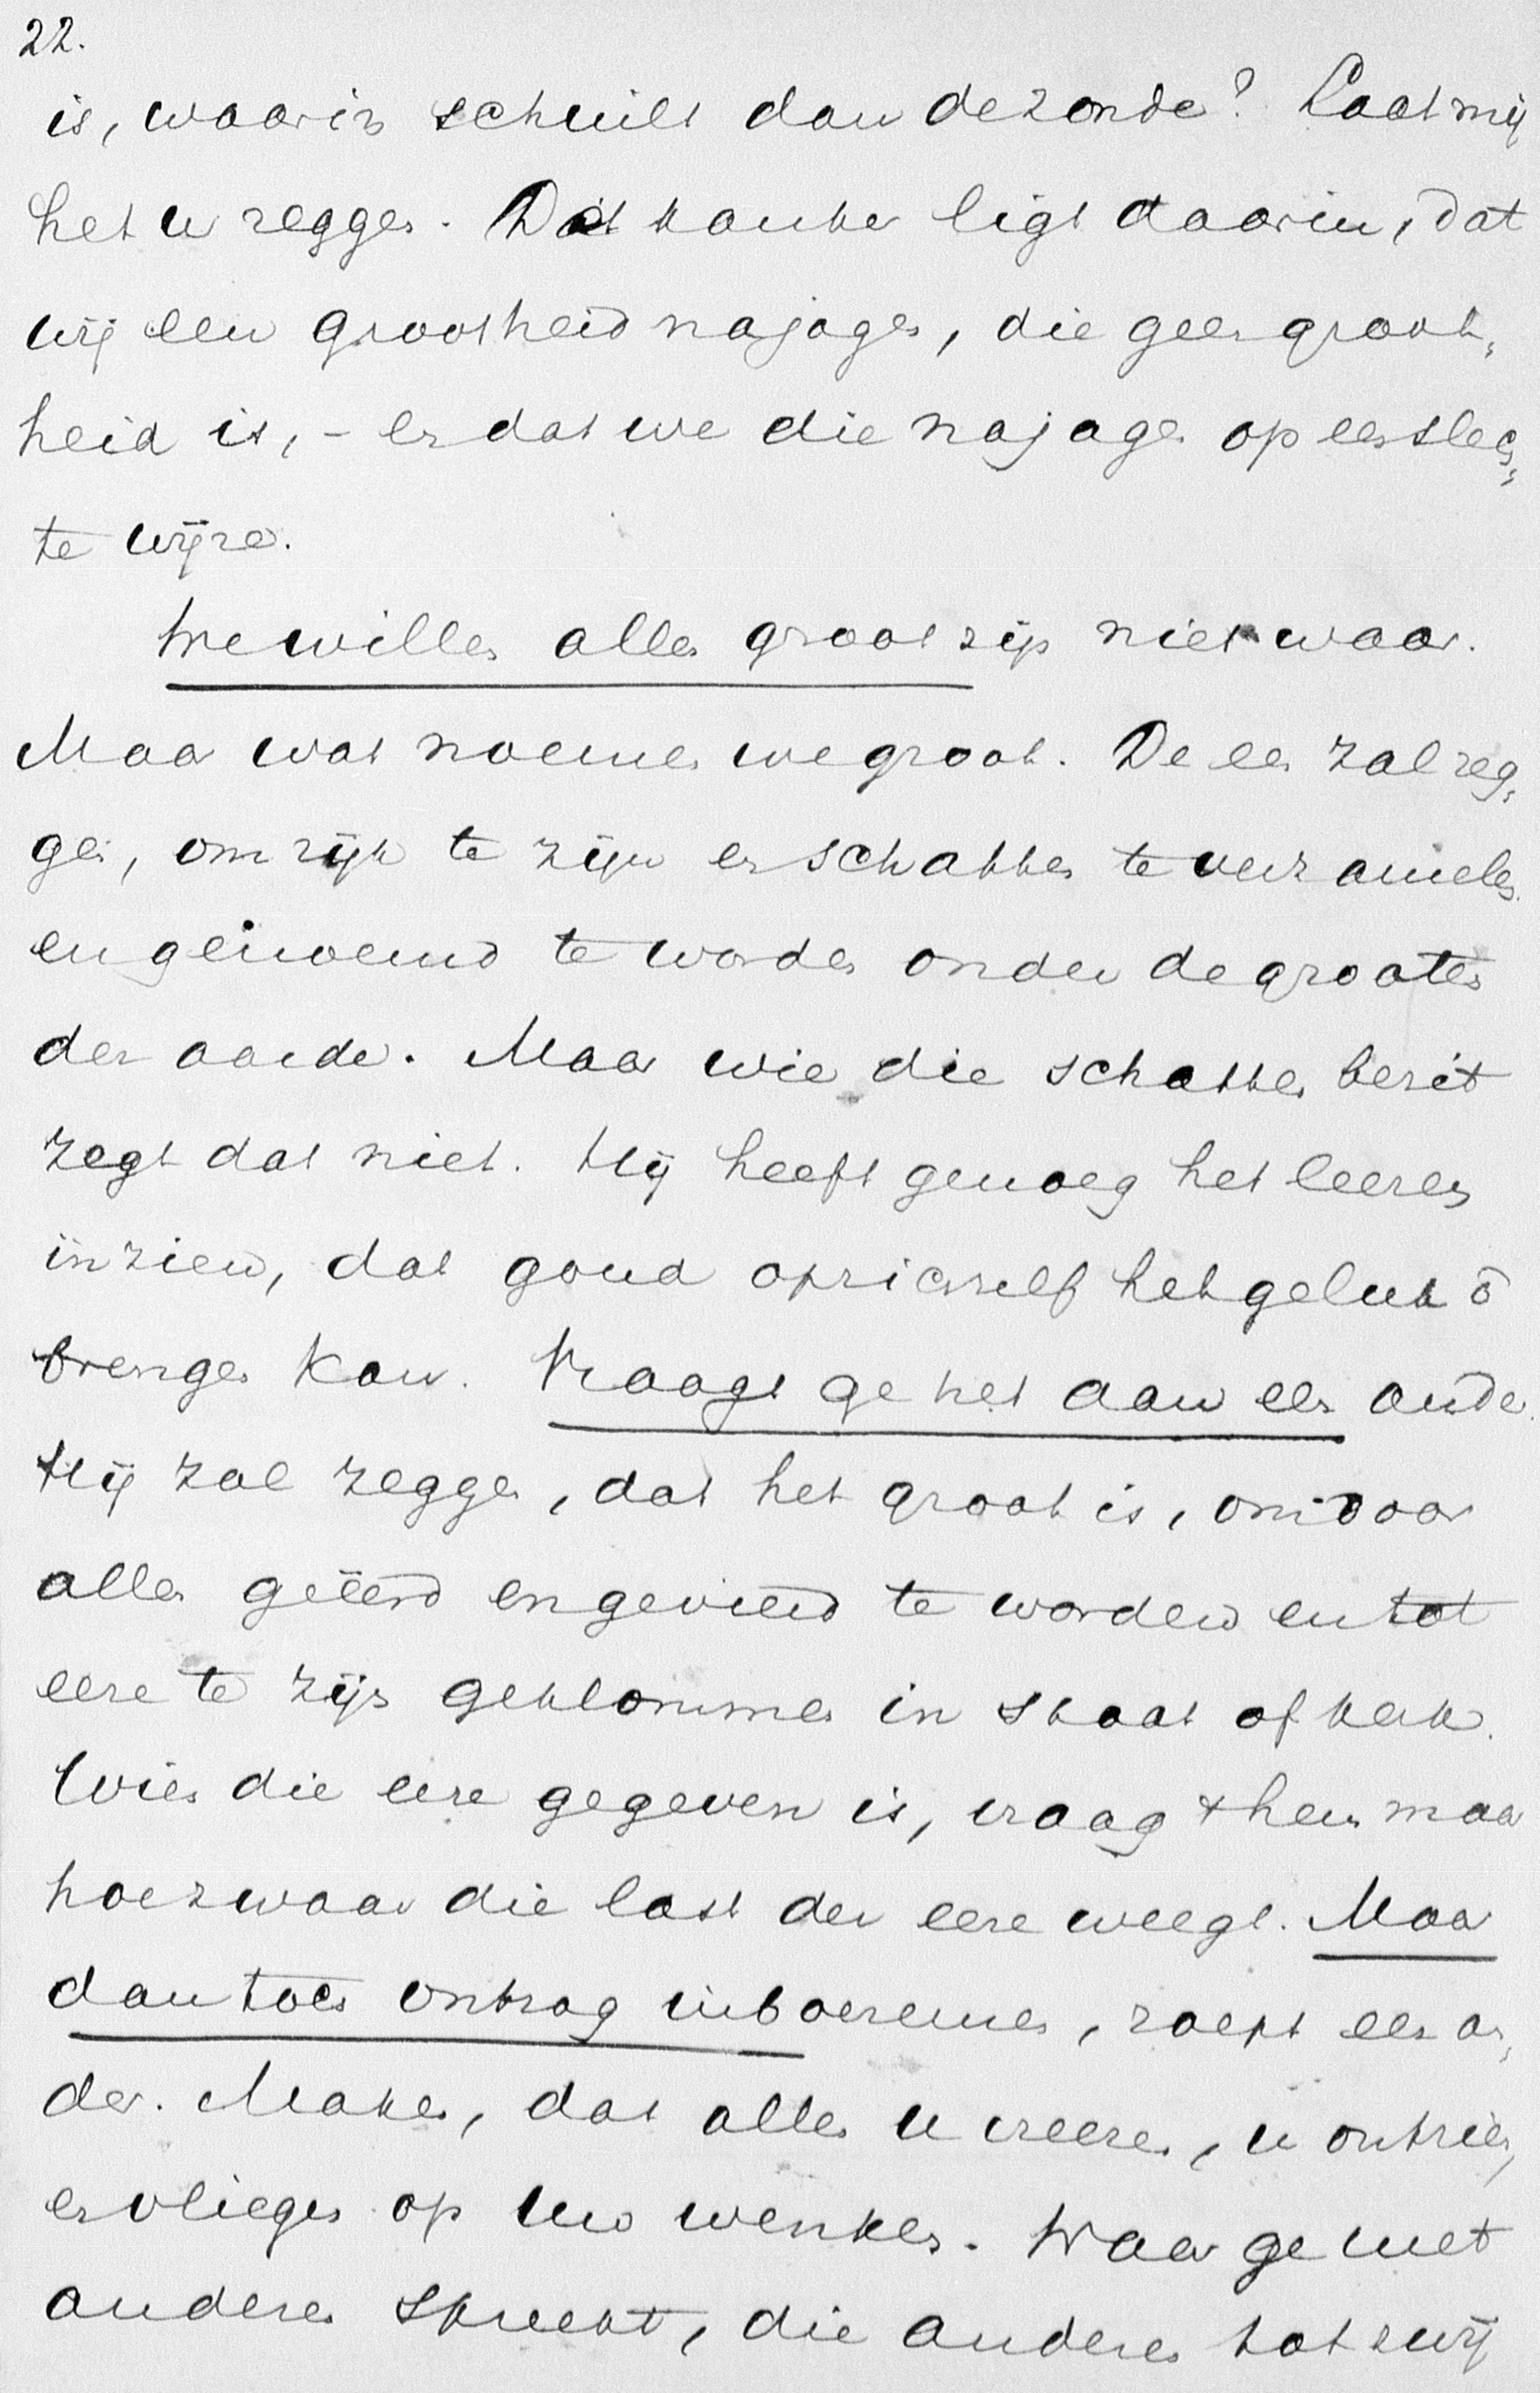 22.
is, waarin schuilt dan de zonde? Laat mij
het u zeggen. Dat kanker ligt daarin, dat
wij een grootheid najagen, die geen groot„
heid is, - en dat we die najagen op een slec„
te wijze.
We willen allen groot zijn niet waar.
Maar wat noemen we groot. De een zal zeg„
gen, om rijk te zijn en schatten te verzamelen
en genoemd te worden onder de grooten
der aarde. Maar wie die schatten bezit
zegt dat niet. Hij heeft genoeg het leeren
inzien, dat goud opzichzelf het geluk ō
brengen kan. Vraagt ge het aan een ander.
Hij zal zeggen, dat het groot is, om door
allen geëerd en gevierd te worden en tot
eere te zijn geklommen in staat of kerk.
Wien die eere gegeven is, vraag het hem maar
hoe zwaar die last der eere weegt. Maar
dan toch ontzag inboezemen, roept een an„
der. Maken, dat allen u vreezen, u ontzien,
en vliegen op uw wenken. Waar ge met
anderen spreekt, die anderen tot zwij